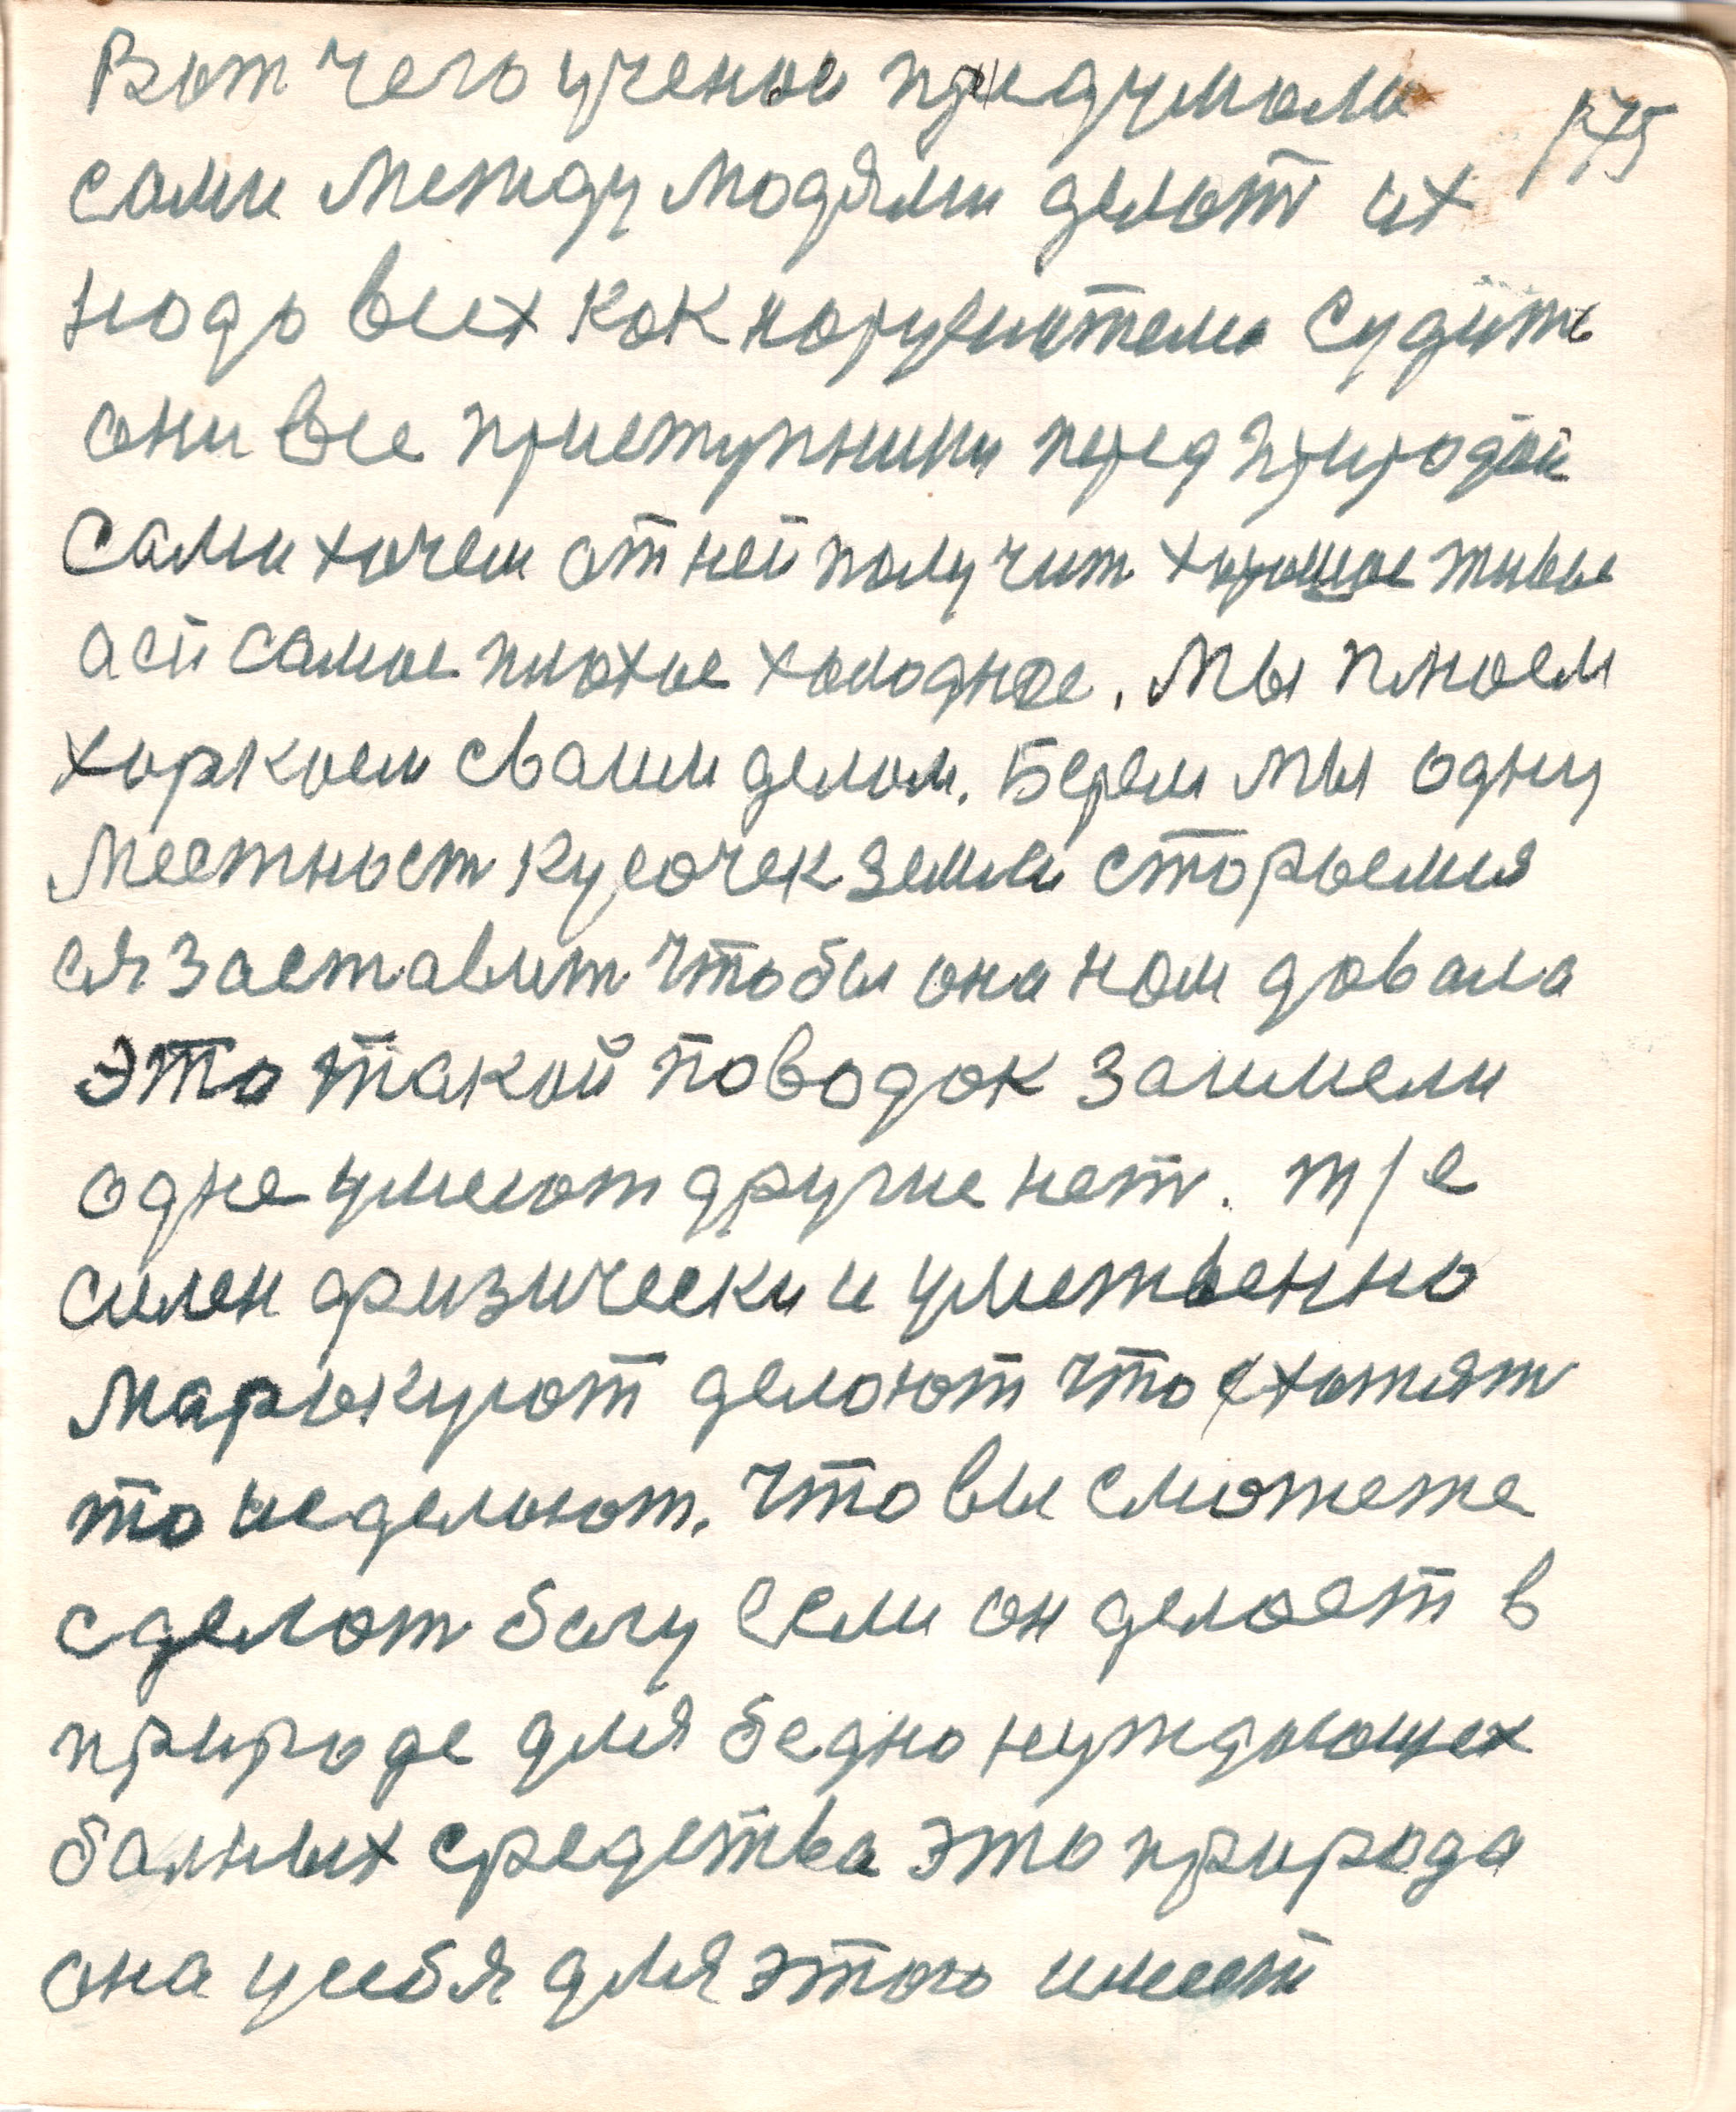 Вот чего ученые придумали
175
сами между людями делают их
надо всех как нарушители судить
они все приступники перед природой
Сами хочем от ней получит хорошое живое
а ей самое плохое холодное. Мы плюем
харкаем сваим делом. Берем мы одну
местност кусочек земли стораемся
ся заставит чтобы она нам давала
это такой поводок заимели
одне умеют другие нет. т/е
силен физически и умственно
маракуют делают что хотят
то и делают. Что вы сможете
сделат богу если он делает в
природе для бедно нуждающех
балных средства это природа
она у себя для этого имеет